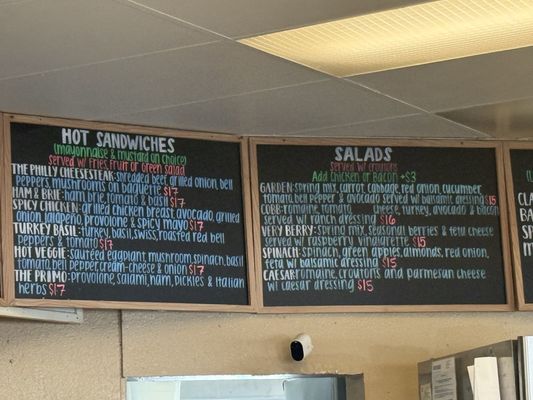 HOT SANDWICHES
(mayonnaise & mustard on choice)
Served w/ Fries, Fruit or Green Salad
THE PHILLY CHEESESTEAK: shredded beef, grilled onion, bell
peppers, mushrooms on baguette $17
HAM & BRIE: ham, brie, tomato & basil $17
SPICY CHICKEN: grilled chicken breast, avocado, grilled
onion, jalapeño, provolone & spicy mayo $17
TURKEY BASIL: turkey, basil, swiss, roasted red bell
peppers & tomato $17
HOT VEGGIE: sautéed eggplant, mushroom, spinach, basil
tomato, bell pepper, cream-cheese & onion $17
THE PROMO: provolone, salami, ham, pickles & Italian
herbs $17
SALADS
served w/ croutons
Add Chicken or Bacon +$3
GARDEN: Spring mix, carrot, cabbage, red onion, cucumber,
tomato, bell pepper & avocado served w/ balsamic dressing $15
COBB: tomatoe, tomato cheese, turkey, avocado & bacon
served w/ ranch dressing $16
VERY BERRY: spring mix, seasonal berries & feta cheese
served w/ raspberry vinaigrette $15
SPINACH: spinach, green apples, almonds, red onion,
feta w/ balsamic dressing $15
CAESAR: romaine, croutons and parmesan cheese
w/ caesar dressing $15
CLA
BAC
SPI